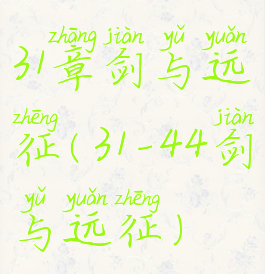 zhāng jiàn yǔ yuǎn
31章剑与远
zhēng jiàn
征(31-44剑
yǔ yuǎn zhēng
与远征)